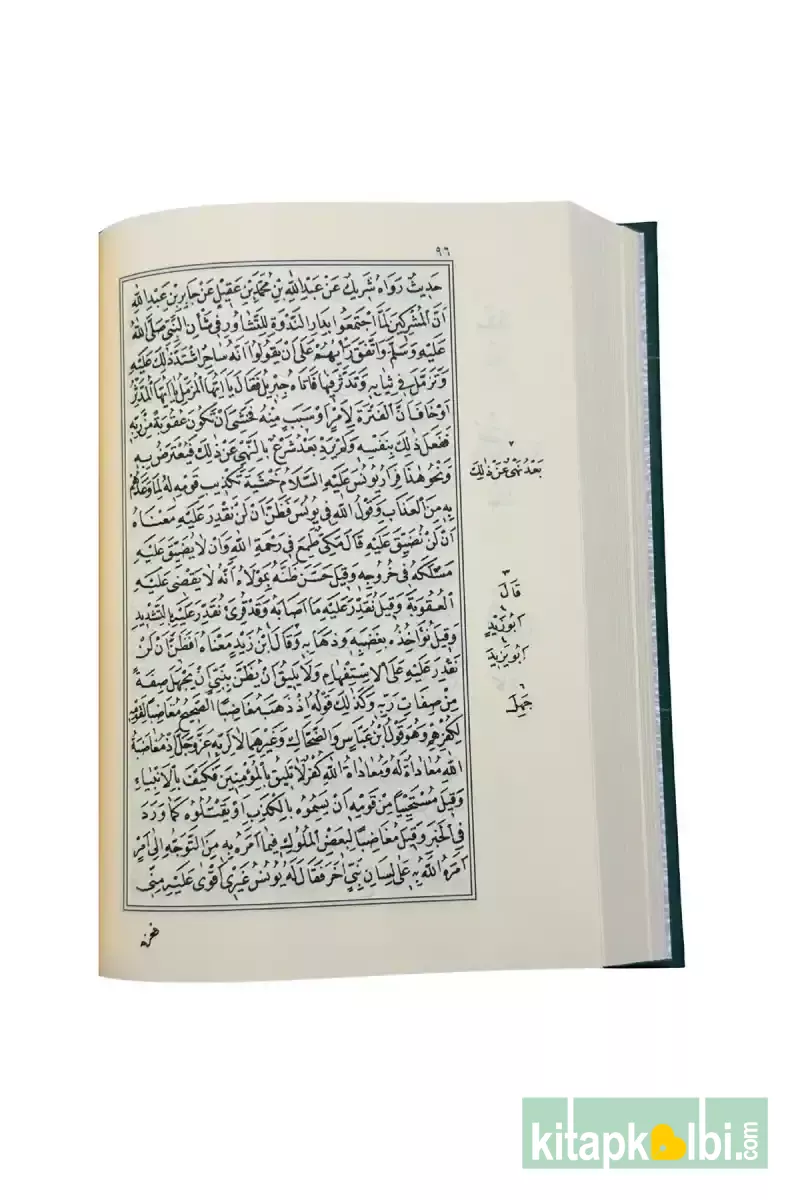 ٩٦
حَدِيثٌ رَوَاهُ شَرِيكٌ عَنْ عَبْدِ اللّٰهِ بْنِ مُحَمَّدِ بْنِ عَقِيلٍ عَنْ جَابِرِ بْنِ عَبْدِ اللّٰهِ
اَنَّ الْمُشْرِكِينَ لَمَّا اجْتَمَعُوا بِدَارِ النَّدْوَةِ لِلتَّشَاوُرِ فِى شَأْنِ النَّبِىِّ صَلَّى اللّٰهُ
عَلَيْهِ وَسَلَّمَ وَاتَّفَقَ رَأْيُهُمْ عَلٰى اَنْ يَقُولُوا اِنَّهُ سَاحِرٌ اشْتَدَّ ذٰلِكَ عَلَيْهِ
وَتَزَمَّلَ فِى ثِيَابِهِ وَتَدَثَّرَ فِيهَا فَاَتَاهُ جِبْرِيلُ فَقَالَ يَا اَيُّهَا الْمُزَّمِّلُ يَا اَيُّهَا الْمُدَّثِّرُ
اَوْ خَافَ اَنَّ الْفَتْرَةَ لِاَمْرٍ اَوْ سَبَبٍ مِنْهُ فَخَشِىَ اَنْ تَكُونَ عُقُوبَةً مِنْ رَبِّهِ
فَفَعَلَ ذٰلِكَ بِنَفْسِهِ وَلَمْ يَرِدْ بَعْدُ شَرْعٌ بِالنَّهْىِ عَنْ ذٰلِكَ فَيُعْتَرَضَ بِهِ
وَنَحْوُ هٰذَا فِرَارُ يُونُسَ عَلَيْهِ السَّلَامُ خَشْيَةَ تَكْذِيبِ قَوْمِهِ لَهُ لِمَا وَعَدَهُمْ
بِهِ مِنَ الْعَذَابِ وَقَوْلُ اللّٰهِ فِى يُونُسَ فَظَنَّ اَنْ لَنْ نَقْدِرَ عَلَيْهِ مَعْنَاهُ
اَنْ لَنْ نُضَيِّقَ عَلَيْهِ قَالَ مَكِّىٌّ طَمِعَ فِى رَحْمَةِ اللّٰهِ وَاَنْ لَا يُضَيِّقَ عَلَيْهِ
مَسْلَكَهُ فِى خُرُوجِهِ وَقِيلَ حَسَّنَ ظَنَّهُ بِمَوْلَاهُ اَنَّهُ لَا يَقْضِى عَلَيْهِ
الْعُقُوبَةَ وَقِيلَ نُقَدِّرَ عَلَيْهِ مَا اَصَابَهُ وَقَدْ قُرِئَ نُقَدِّرَ عَلَيْهِ بِالتَّشْدِيدِ
وَقِيلَ نُؤَاخِذَهُ بِغَضَبِهِ وَذَهَابِهِ وَقَالَ ابْنُ زَيْدٍ مَعْنَاهُ اَفَظَنَّ اَنْ لَنْ
نَقْدِرَ عَلَيْهِ عَلَى الْاِسْتِفْهَامِ وَلَا يَلِيقُ اَنْ يُظَنَّ بِنَبِىٍّ اَنْ يَجْهَلَ صِفَةً
مِنْ صِفَاتِ رَبِّهِ وَكَذٰلِكَ قَوْلُهُ اِذْ ذَهَبَ مُغَاضِبًا الصَّحِيحُ مُغَاضِبًا لِقَوْمِهِ
لِكُفْرِهِمْ وَهُوَ قَوْلُ ابْنِ عَبَّاسٍ وَالضَّحَّاكِ وَغَيْرِهِمَا لَا لِرَبِّهِ عَزَّ وَجَلَّ اِذْ مُغَاضَبَةُ
اللّٰهِ مُعَادَاةٌ لَهُ وَمُعَادَاةُ اللّٰهِ كُفْرٌ لَا تَلِيقُ بِالْمُؤْمِنِينَ فَكَيْفَ بِالْاَنْبِيَاءِ
وَقِيلَ مُسْتَحْيِيًا مِنْ قَوْمِهِ اَنْ يَسِمُوهُ بِالْكَذِبِ اَوْ يَقْتُلُوهُ كَمَا وَرَدَ
فِى الْخَبَرِ وَقِيلَ مُغَاضِبًا لِبَعْضِ الْمُلُوكِ فِيمَا اَمَرَهُ بِهِ مِنَ التَّوَجُّهِ اِلٰى اَمْرٍ
اَمَرَهُ اللّٰهُ بِهِ عَلٰى لِسَانِ نَبِىٍّ اٰخَرَ فَقَالَ لَهُ يُونُسُ غَيْرِى اَقْوٰى عَلَيْهِ مِنِّى
٢
بَعْدُ نَهْىٌ عَنْ ذٰلِكَ
٣
قَالَ
اَبُو زَيْدٍ
اَبُو يَزِيدَ
٦
جَهِلَ
kitapkalbi.com